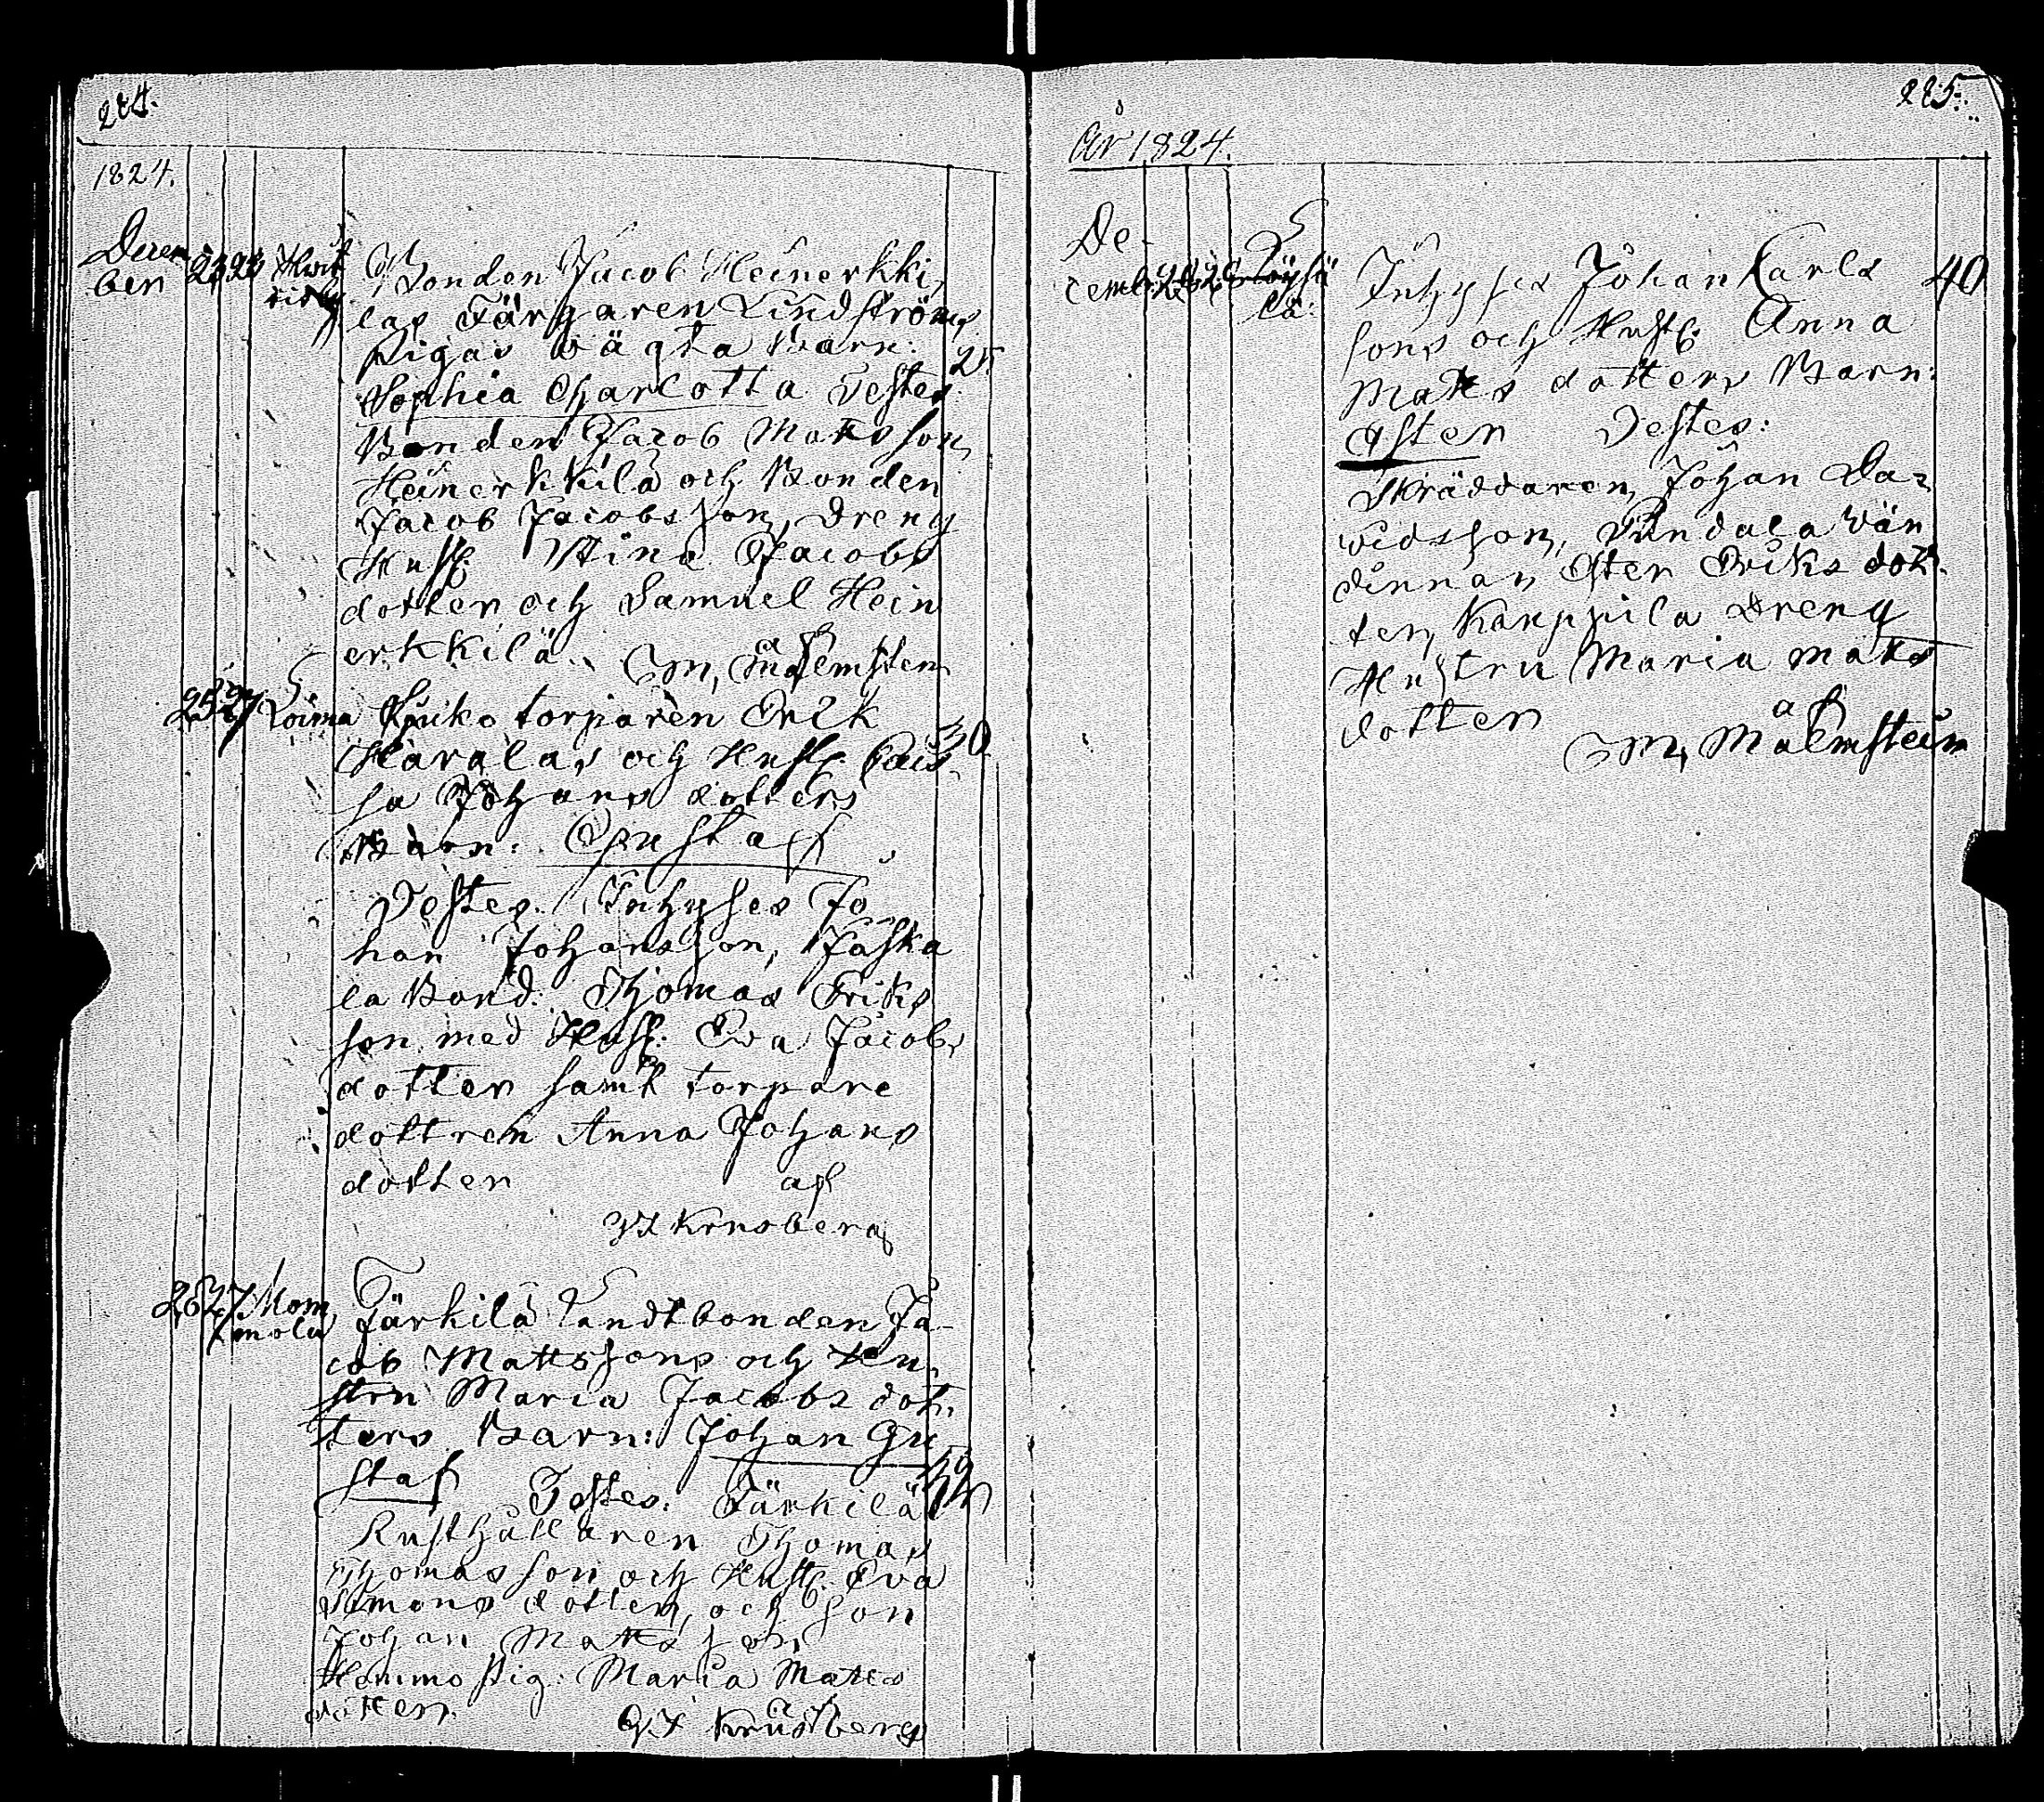 284.
1824.
Decem
ber 23 23 Hvit
tis by
Bonden Jacob Heinerkki
las Färgaren Lindströms
Pigas oägta Barn:
25.
Sophia Charlotta Testes
Bonden Jacob Matsson
Heinerkkilä och Bonden
Jacob Jacobsson, Dreng
Hust. Stina Jacobs
dotter och Samuel Hein
erkkilä.. af
M, Malmsten
25 27 Loima
torparen Erik
30
Haralas och Hust. Cais
sa Johans dotters
Barn: Gustaf
Testes. Inhyses Jo
han Johansson, Jaska
la Bond: Thomas Eriks
son med Hust: Eva Jacobs
dotter samt torpare
dottren Anna Johans
dotter af
Krusberg
26 27 Mom
mola
Färkilä Landtbonden Ja-
cob Mattssons och Hu
stru Maria Jacobs dot
ters Barn: Johan Gu
staf Testes. Färkilä
Rusthållaren Thomas
Thomasson och Hust. Eva
Simons dotter, och Son
Johan Matsson
Hemmo Pig: Maria Mats
dotter.
Krusberg
285.
År 1824.
De-
cemb. 28 28
Inhyses Johan Carls
40
sons och Hust. Anna
Mats dotters Barn:
Ester Testes:
Skräddaren Johan Da-
vidsson,
Ester Eriks dot
ter, Karppila Dreng
Hustru Maria Mats
dotter
af
M, Malmstein